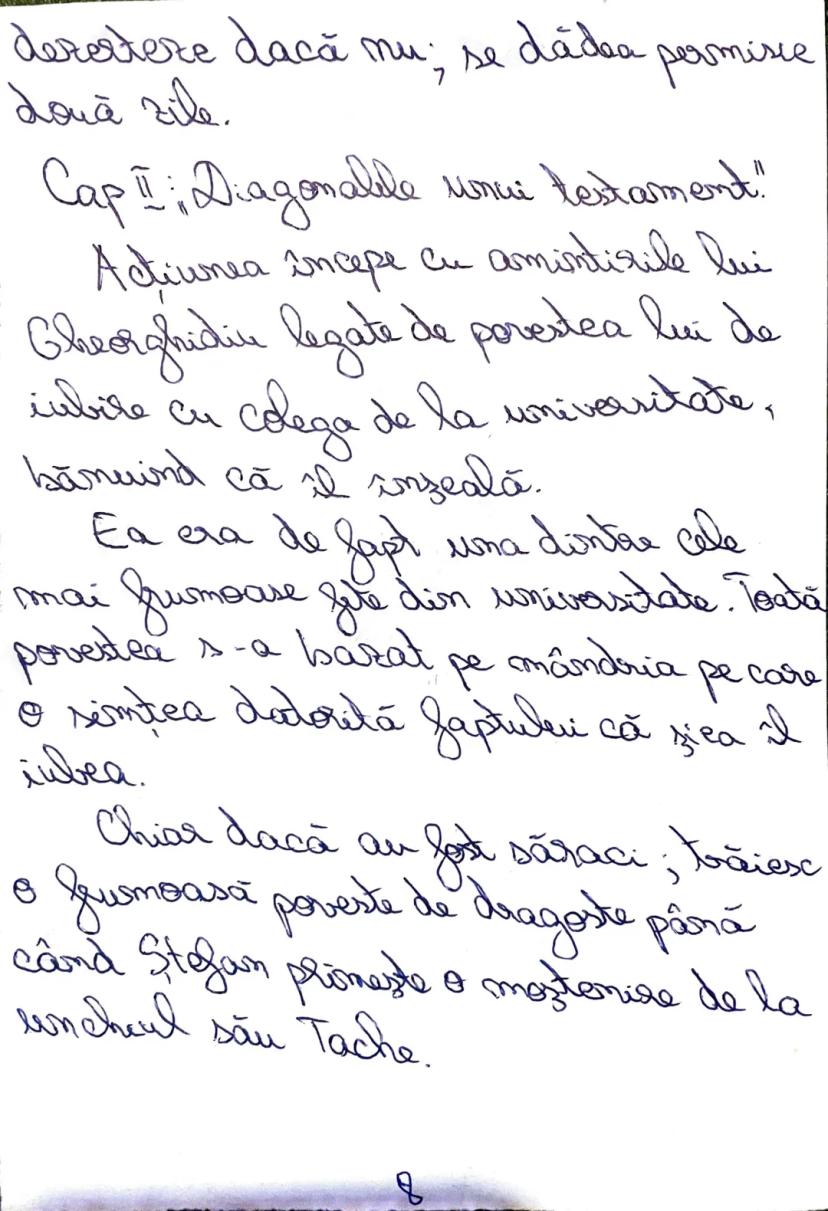 dezertere dacă nu; se dădea permisie
două zile.
Cap II: „Diagonalele unui testament"
Acțiunea începe cu amintirile lui
Gheorghidiu legate de povestea lui de
iubire cu colega de la universitate,
bănuind că îl înșeală.
Ea era de fapt una dintre cele
mai frumoase fete din universitate. Toată
povestea s-a bazat pe mândria pe care
o simțea datorită faptului că și ea îl
iubea.
Chiar dacă au fost săraci; trăiesc
o frumoasă poveste de dragoste până
când Ștefan primește o moștenire de la
unchiul său Tache.
8